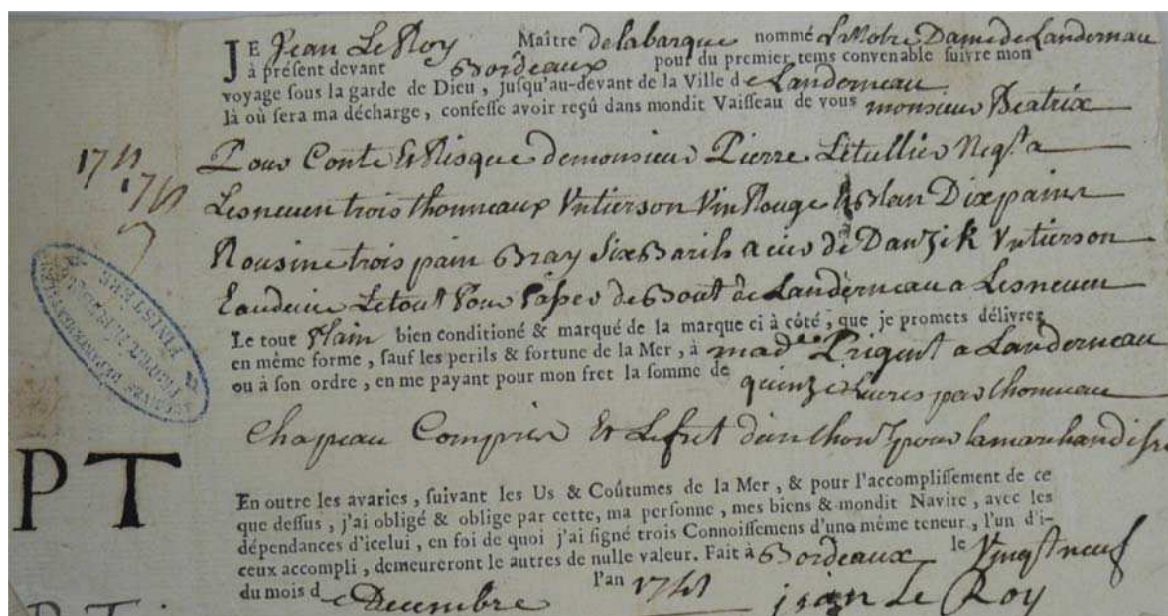 JE Jean Le Roy Maître de la barque nommé Le Notre Dame de Landerneau
à présent devant Bordeaux pour du premier tems convenable suivre mon
voyage sous la garde de Dieu, jusqu'au-devant de la Ville de Landerneau
là où sera ma décharge, confesse avoir reçû dans mondit Vaisseau de vous monsieur Beatrix
Pour Conte Et Risque de monsieur Pierre Letullier Negt. a
Lesneuen trois thonneaux Vn tierson Vin Rouge & Blan Dix pains
Rousine trois pain Bray Six Barils de Danzik Vn tierson
Eau de vie Le tout Pour Passer de Bout de Landerneau a Lesneuen
Le tout Plain bien conditioné & marqué de la marque ci à côté, que je promets délivrer
en même forme, sauf les perils & fortune de la Mer, à made. Prigent a Landerneau
ou à son ordre, en me payant pour mon fret la somme de quinze Livres par thonneau
Chapeau Compris Et Le fret d'un thonr. pour la marchandise
PT
En outre les avaries, suivant les Us & Coûtumes de la Mer, & pour l'accomplissement de ce
que dessus, j'ai obligé & oblige par cette, ma personne, mes biens & mondit Navire, avec les
dépendances d'icelui, en foi de quoi j'ai signé trois Connoissemens d'une même teneur, l'un d'i-
ceux accompli, demeureront le autres de nulle valeur. Fait à Bordeaux le Vingt neuf
du mois de Decembre l'an
jean Le Roy